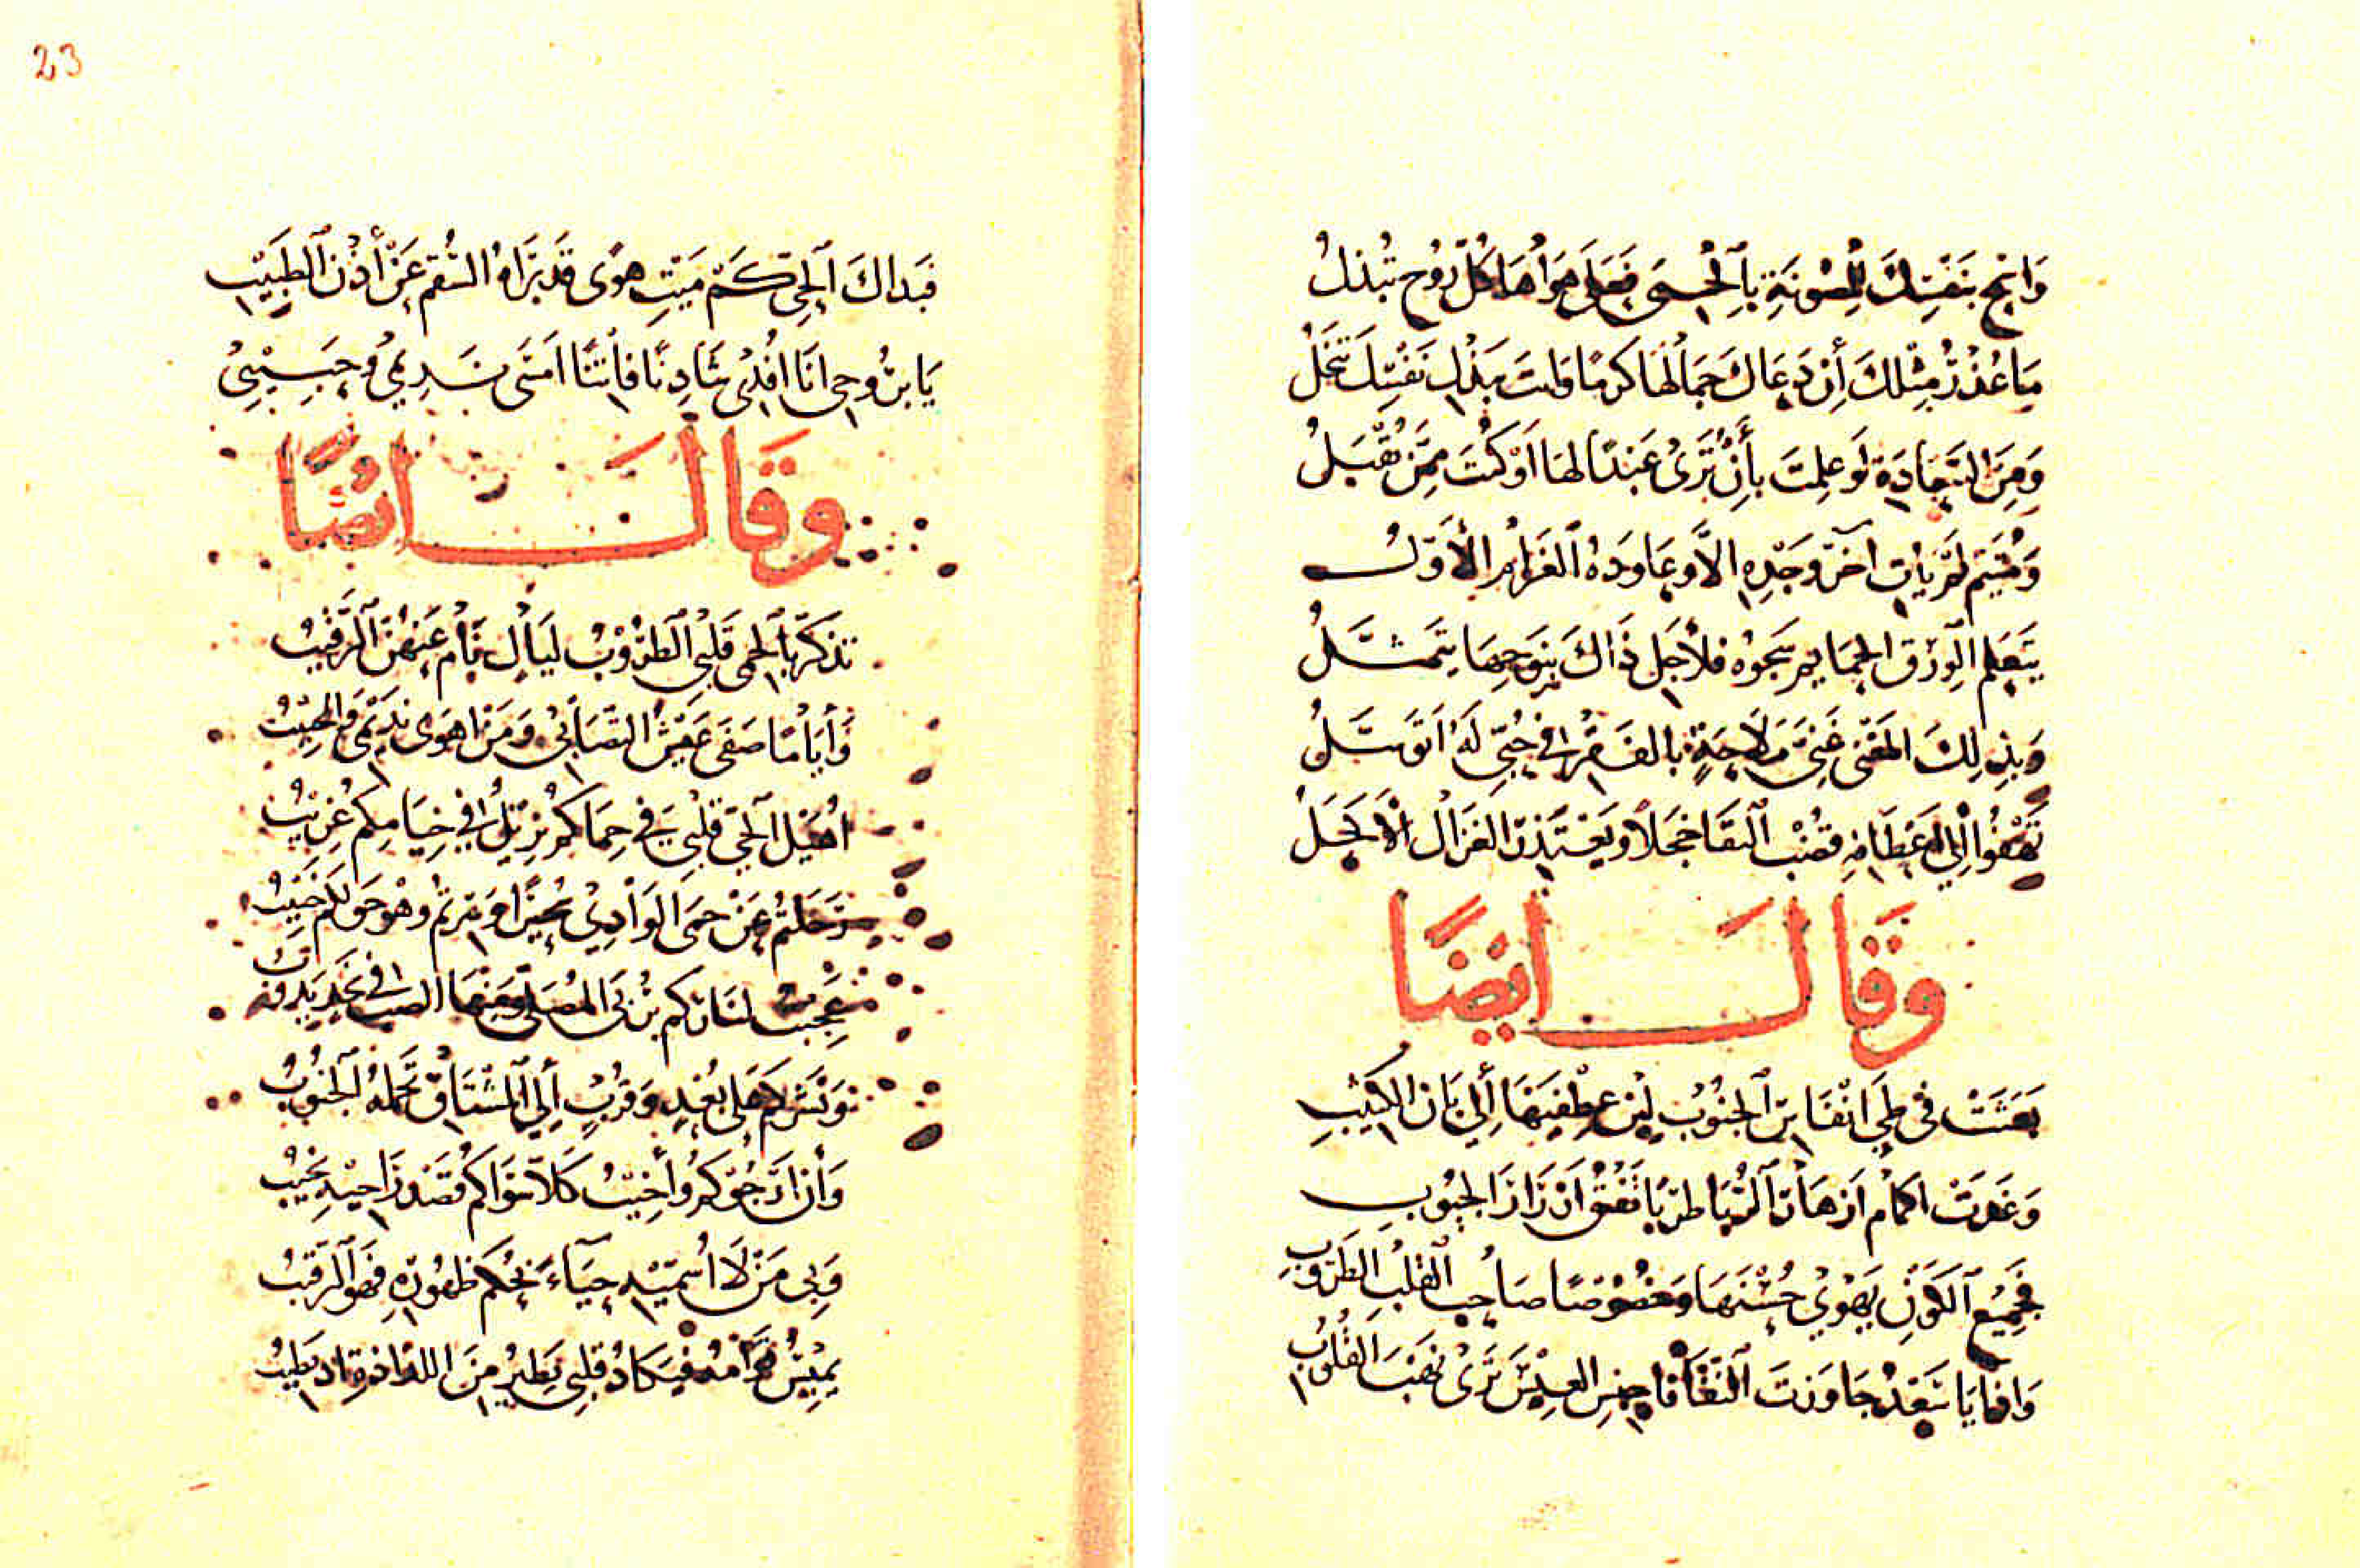 وَانِخ بِنَفْسِكَ المَصُونَةِ بِالْحِمَى فَعَلَى هَوَاهَا كُلُّ رُوحٍ تُبْذَلُ
مَا عُذْرُ مِثْلِكَ أِن دَعَاكَ جَمَالُهَا كَرَمًا وَانتَ بِبَذْلِ نَفْسِكَ تَبْخَلُ
وَمِنَ السَّعَادَةِ لَو عَلِمتَ بأَنْ تُرَى عَبْدًا لهَا اَوْ كُنْتَ مِمَّنْ يُقْبَلُ
وَمُتَيَّم لَمْ يَأتِ آخرُ وَجْدِهِ الاَّ وعَاوَدَهُ الغَرَامُ الأَوّلُ
يَتَعَلم الوُرْق الحمَايم شَجوْهُ فلأَجل ذَاكَ بِنَوحِهَا يَتَمَثَّلُ
وَبذلِكَ المَغْنى غَنِيُّ مَلَاحَةٍ بالفَقْرِ فِي حُبِّي لَهُ اَتَوَسَّلُ
تَهْفُوا اِلَى اَعْطَافِهِ قُضْبُ النَّقَا خَجَلاً وَيَعْتَذِرُ الغَزَالُ الأَكْحَلُ
وَقَالَ ايضًا
بَعَثَتْ فِي طَي اَنْفَاسِ الجَنُوبْ لِيْن عِطْفَيْهَا أِلَى بَان الكَثِيْبِ
وَغَدَتْ اكمَام اَزهَارِ الرُّبَا طرَبًا تَفْتُقُ اَزْرَارَ الجيُوبِ
فجَمِيْع الكَوْنِ يَهْوَى حُسْنَهَا وَخصُوْصًا صَاحِب القَلْبِ الطَرُوْبِ
وَافهَا يَا سَعْدُ جَاوَزتَ النَّقَا فاحبِسِ العِيْسَ تَرَى نَهْبَ القُلُوْبِ
23
فبذاكَ الحَيِّ كَمْ مَيْتِ هوًى قَد بَرَاهُ السُّقم عَنْ أذْن الطَبِيْبِ
يَا بِرُوحي انَا افْدِي شَادِنًا فاتنًا امْسَى نَدِيْمي وَحَبِيْبِي
وَقَالَ ايْضًا
تذكّرَ بالحمَى قَلْبي الطَرُوْبُ لَيَالٍ نَام عَنْهُنَّ الرَّقيْبُ
وَأيَّامًا صَفَى عَيْشُ التصَابي وَمَنْ اهوَى نَدِيْمي وَالحَبِيْبُ
اُهَيْل الحَيِّ قَلْبِي فِي حِمَاكُمْ نزِيْلٌ فِي خِيَامِكُم غَرِيْبُ
رَحَلتُم عَنْ حِمَى الوَادِي
عَجِبت لنَارِكُم
وَنَشْركُم عَلَى بُعْدٍ وَقُرْبٍ أِلَى المُشْتَاقِ تَحملهُ الجَنُوْبُ
وَأن
وَبي مَنْ لَا اُسمّيْهِ حَيَآءً بحُكم ظهُوره فهو الرَّقيْبُ
يَمِيْسُ قوَامهُ فيَكَادُ قلبِي يَطِيرُ مِنَ اللذاذةِ اذ يَطِيْبُ